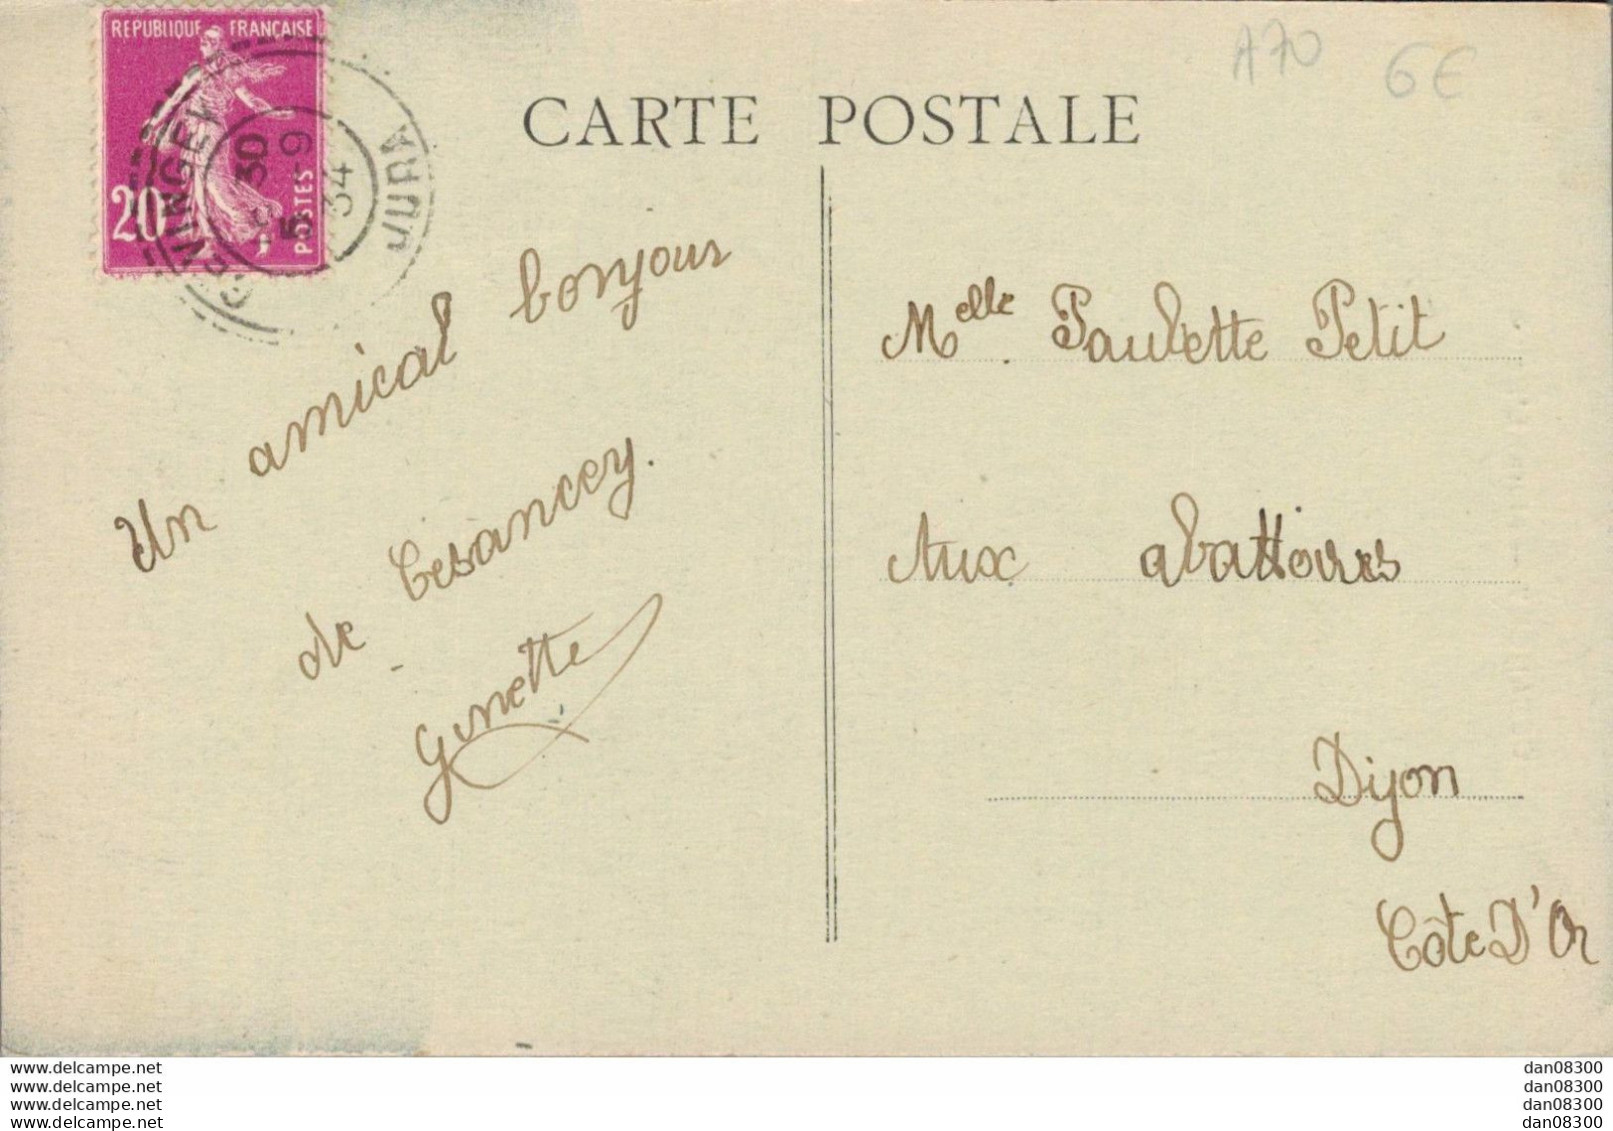 RÉPUBLIQUE FRANÇAISE
20 c.
POSTES
GEVINGEY
JURA
30
5-9
34
A70
6€
CARTE POSTALE
Un amical bonjour
de Cesancey.
Ginette
Melle Paulette Petit
Aux abattoires
Dijon
Côte D'Or
www.delcampe.net
www.delcampe.net
www.delcampe.net
www.delcampe.net
dan08300
dan08300
dan08300
dan08300